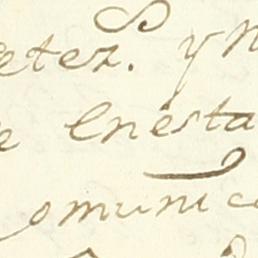 etez. y n
e en esta
comunica